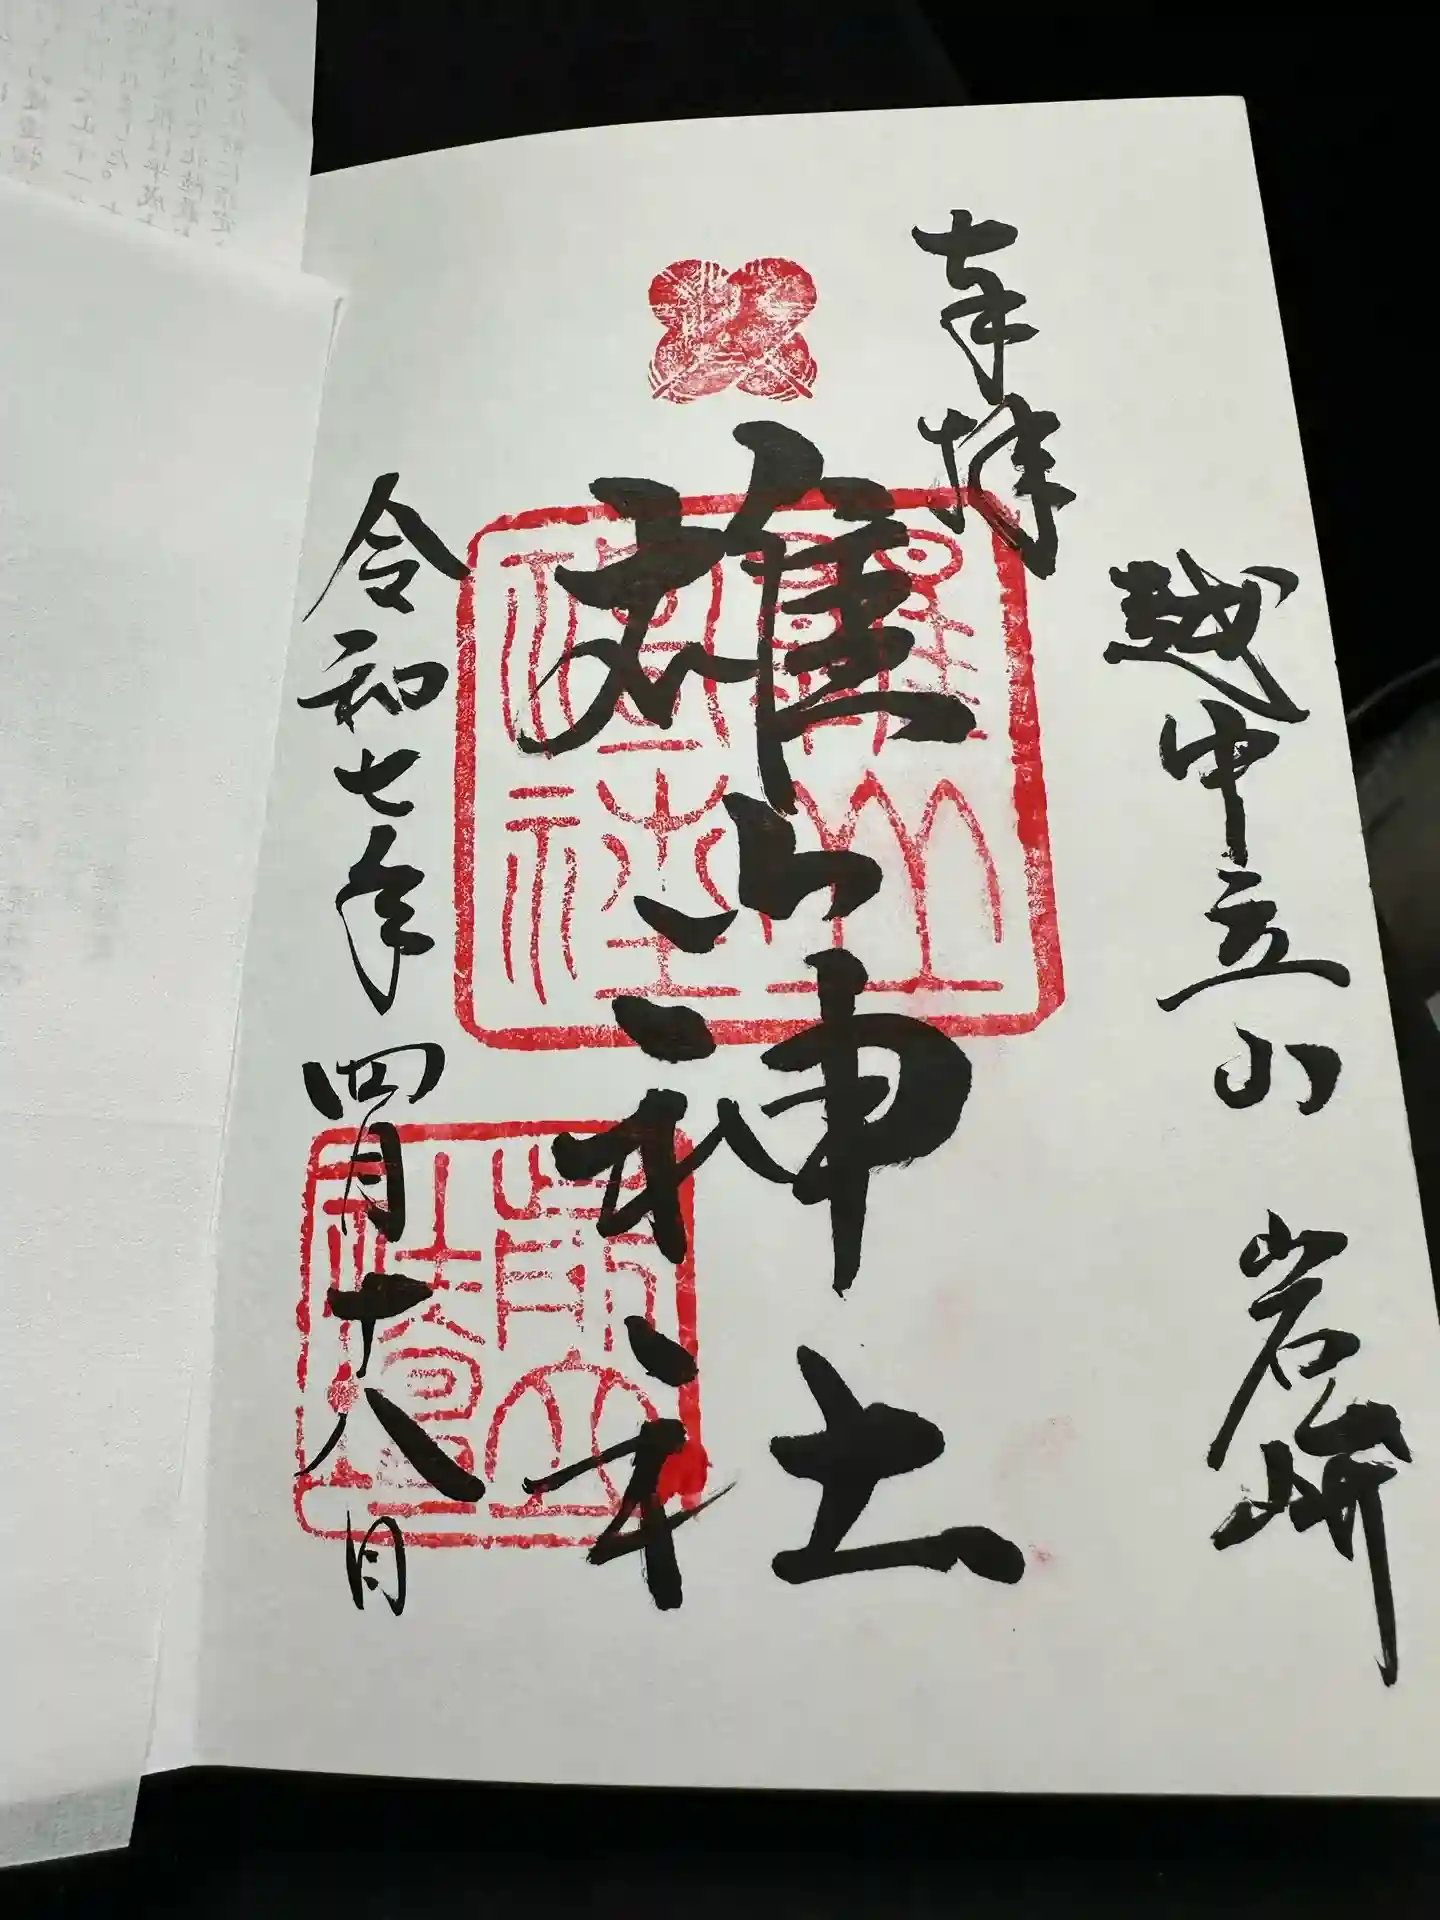 奉拝
越中立山 岩峅
雄山神社
雄山神社
前立社壇
令和七年四月十八日